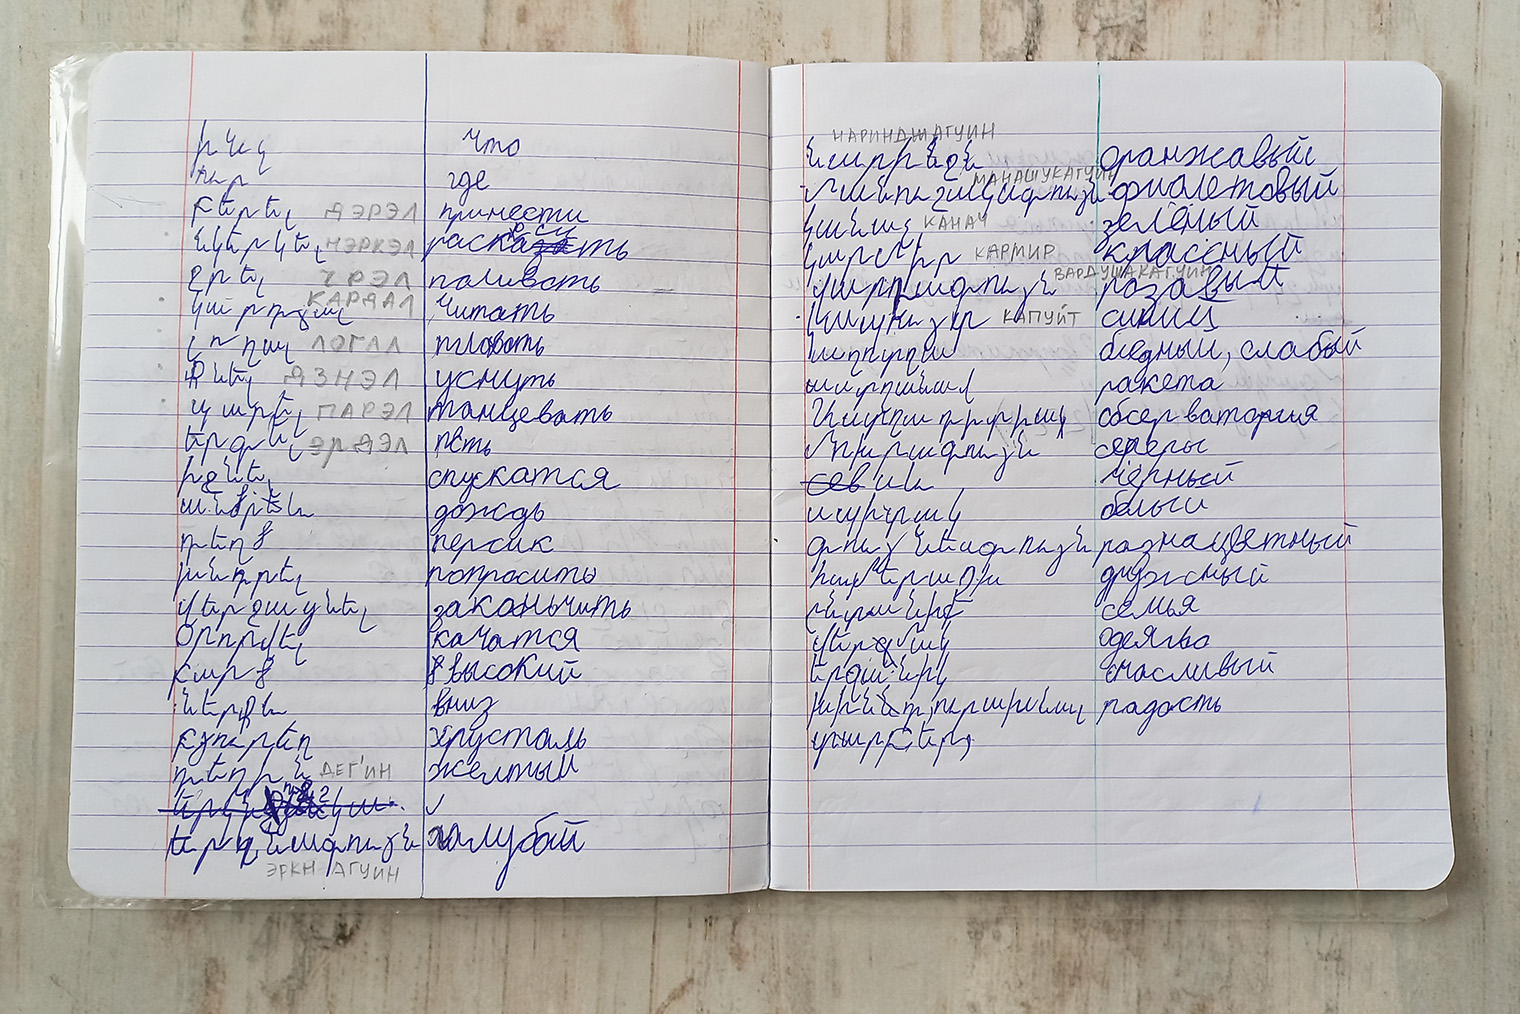 ինչ что
ուր где
բերել ДЭРЭЛ принести
նկերկել НЭРКЭЛ раскасить
ջրել ЧРЭЛ поливать
կարդալ КАРДАЛ читать
լողալ ЛОГАЛ плавать
քնել ДЗНЭЛ уснуть
պարել ПАРЭЛ танцевать
երգել ЭРДЭЛ петь
իջնել спускатся
անձրև дождь
դեղձ персик
խնդրել попросить
վերջացնել законьчить
Օրորվել качатся
բարձ высокий
ներքև вниз
բյուրեղ хрусталь
դեղին ДЕГ'ИН желтый
երկնագույն халубой
ЭРКН АГУИН
НАРИНДЖАГУИН
նարինջն оранжавый
МАНАШУКАГУИН
Մանուշակագույն фиалетовый
կանաչ КАНАЧ зелёный
կարմիր КАРМИР классный
ВАРДУШАКАГУИН
վարդագույն розавый
Կապույտ КАПУЙТ синий
бледный, слабый
ракета
обсерватория
Մոխրագույն
սև чёрный
սպիտակ белый
գույնեագույն разнацветный
дружсный
семья
վերմակ одеяльо
երջանիկ счасливый
радость